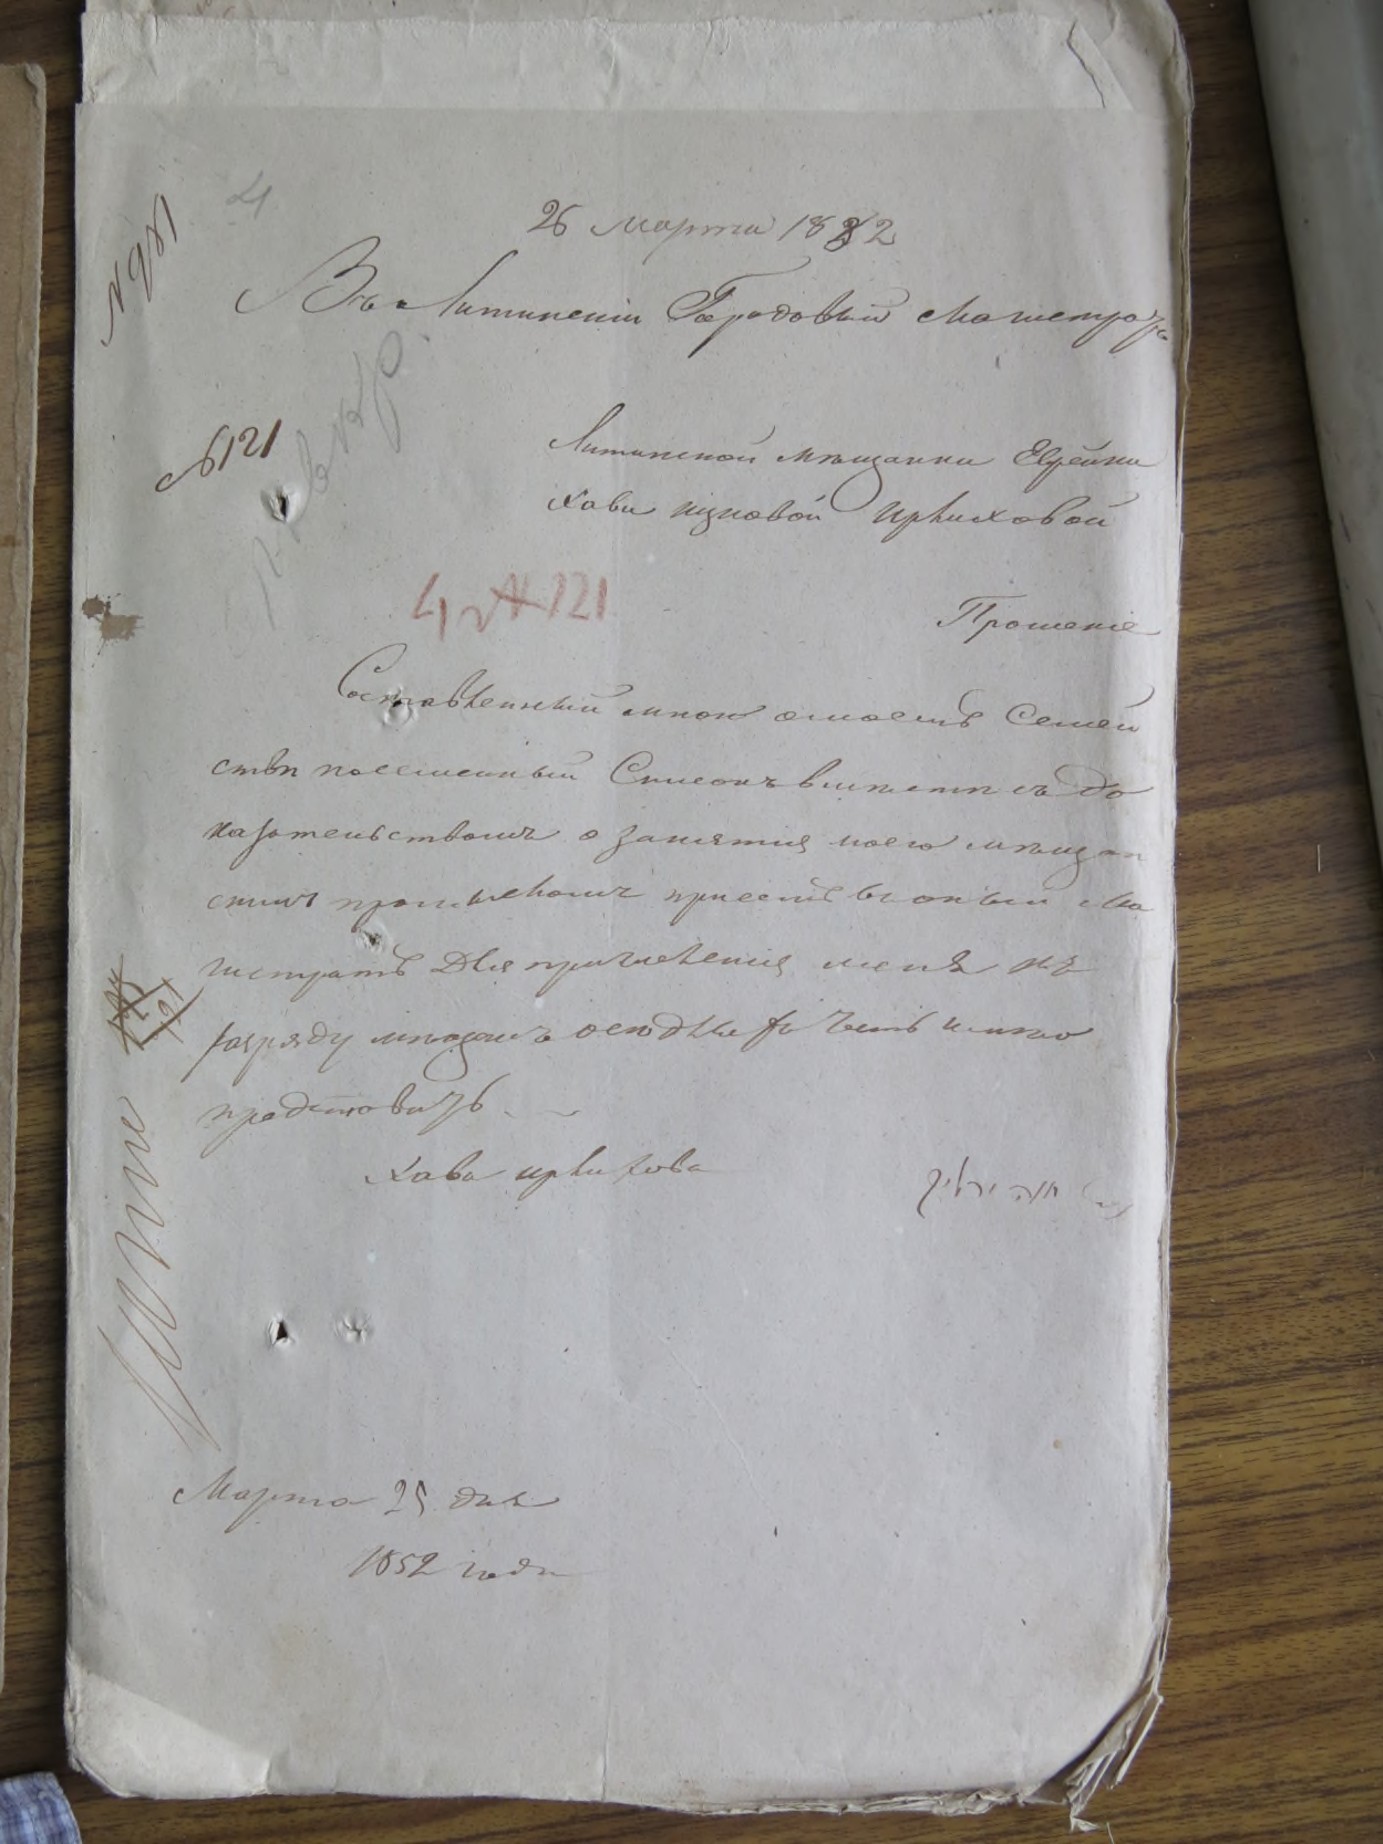 4
N 981
26 Марта 1852
Въ Литинскій Городовый Магистратъ
N 121
Литинской мѣщанки Еврейки
Хави Ицковой Ирлиховой
4 N 121
Прошеніе
Составленный мною о моемъ Семей
ствѣ посемейный Списокъ вмѣстѣ съ до
казательствомъ о занятіи моемъ мѣщан
скимъ промысломъ при семъ въ оный Ма
гистратъ Для причисленія меня къ
разряду мѣщанъ осѣдлыхъ честь имѣю
представить
Хава Ирлихова
חוה ירליך
121
Марта 25 дня
1852 года